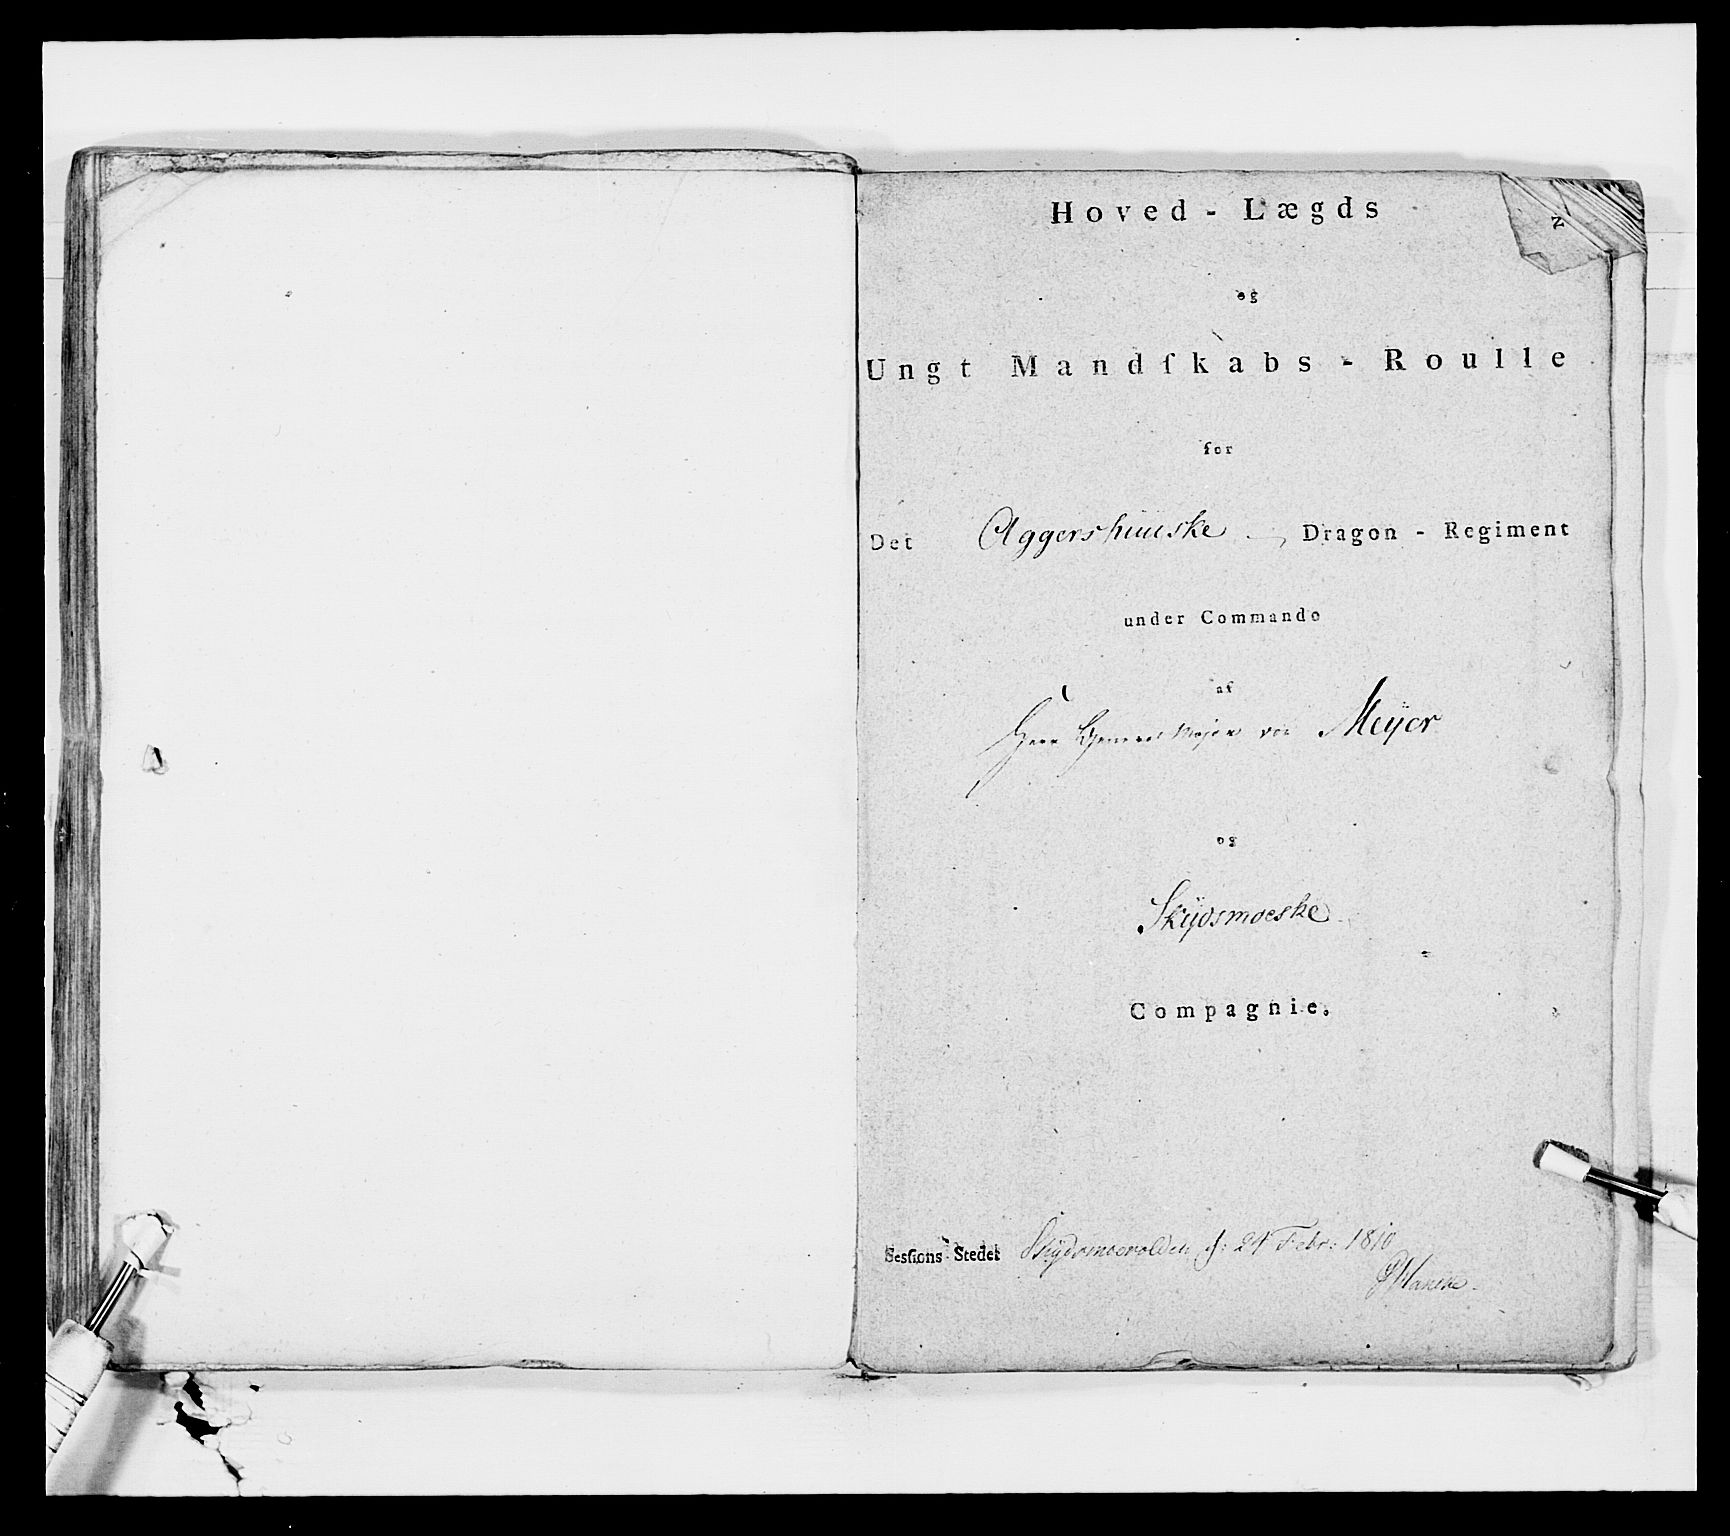 Hoved - Lægds
og
Ungt Mandſkabs - Roulle
for
Det Aggershuuske Dragon - Regiment
under Commando
af
Herr General Major von Meÿer
og
Skÿdsmoeske
Compagnie.
Sesſions Stedet Skÿdsmoevolden d: 24 Febr: 1810